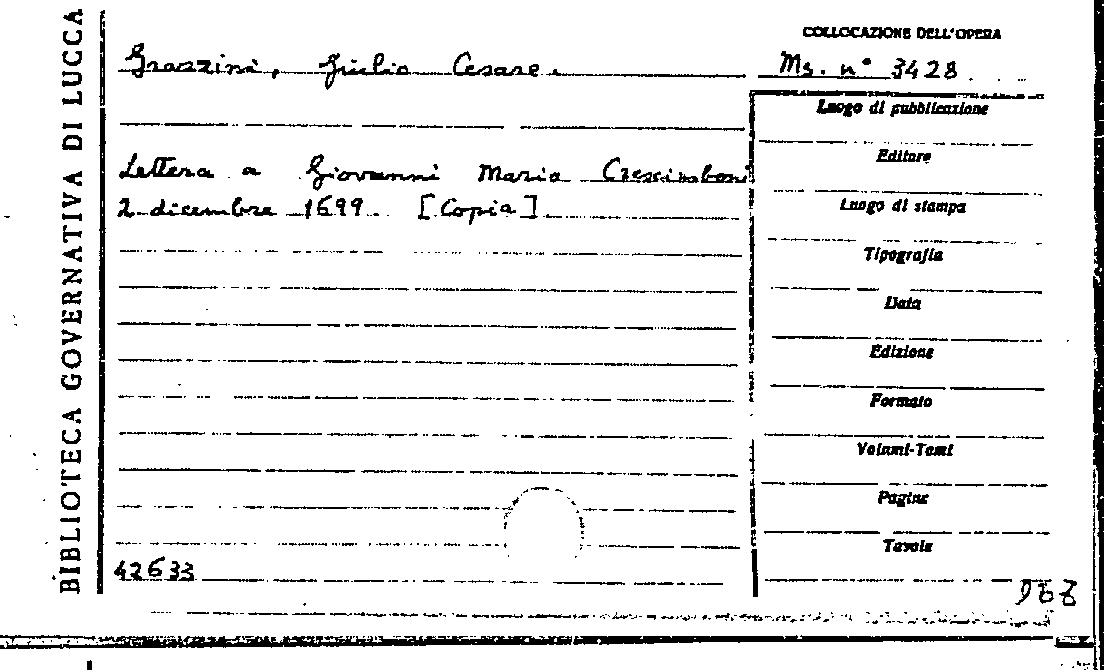 BIBLIOTECA GOVERNATIVA DI LUCCA
COLLOCAZIONE DELL'OPERA
Grazzini, Giulio Cesare.
Ms. n° 3428
Lettera a Giovanni Maria Crescimboni
2 dicembre 1699. [Copia]
Luogo di pubblicazione
Editore
Luogo di stampa
Tipografia
Data
Edizione
Formato
Volumi-Tomi
Pagine
Tavole
42633